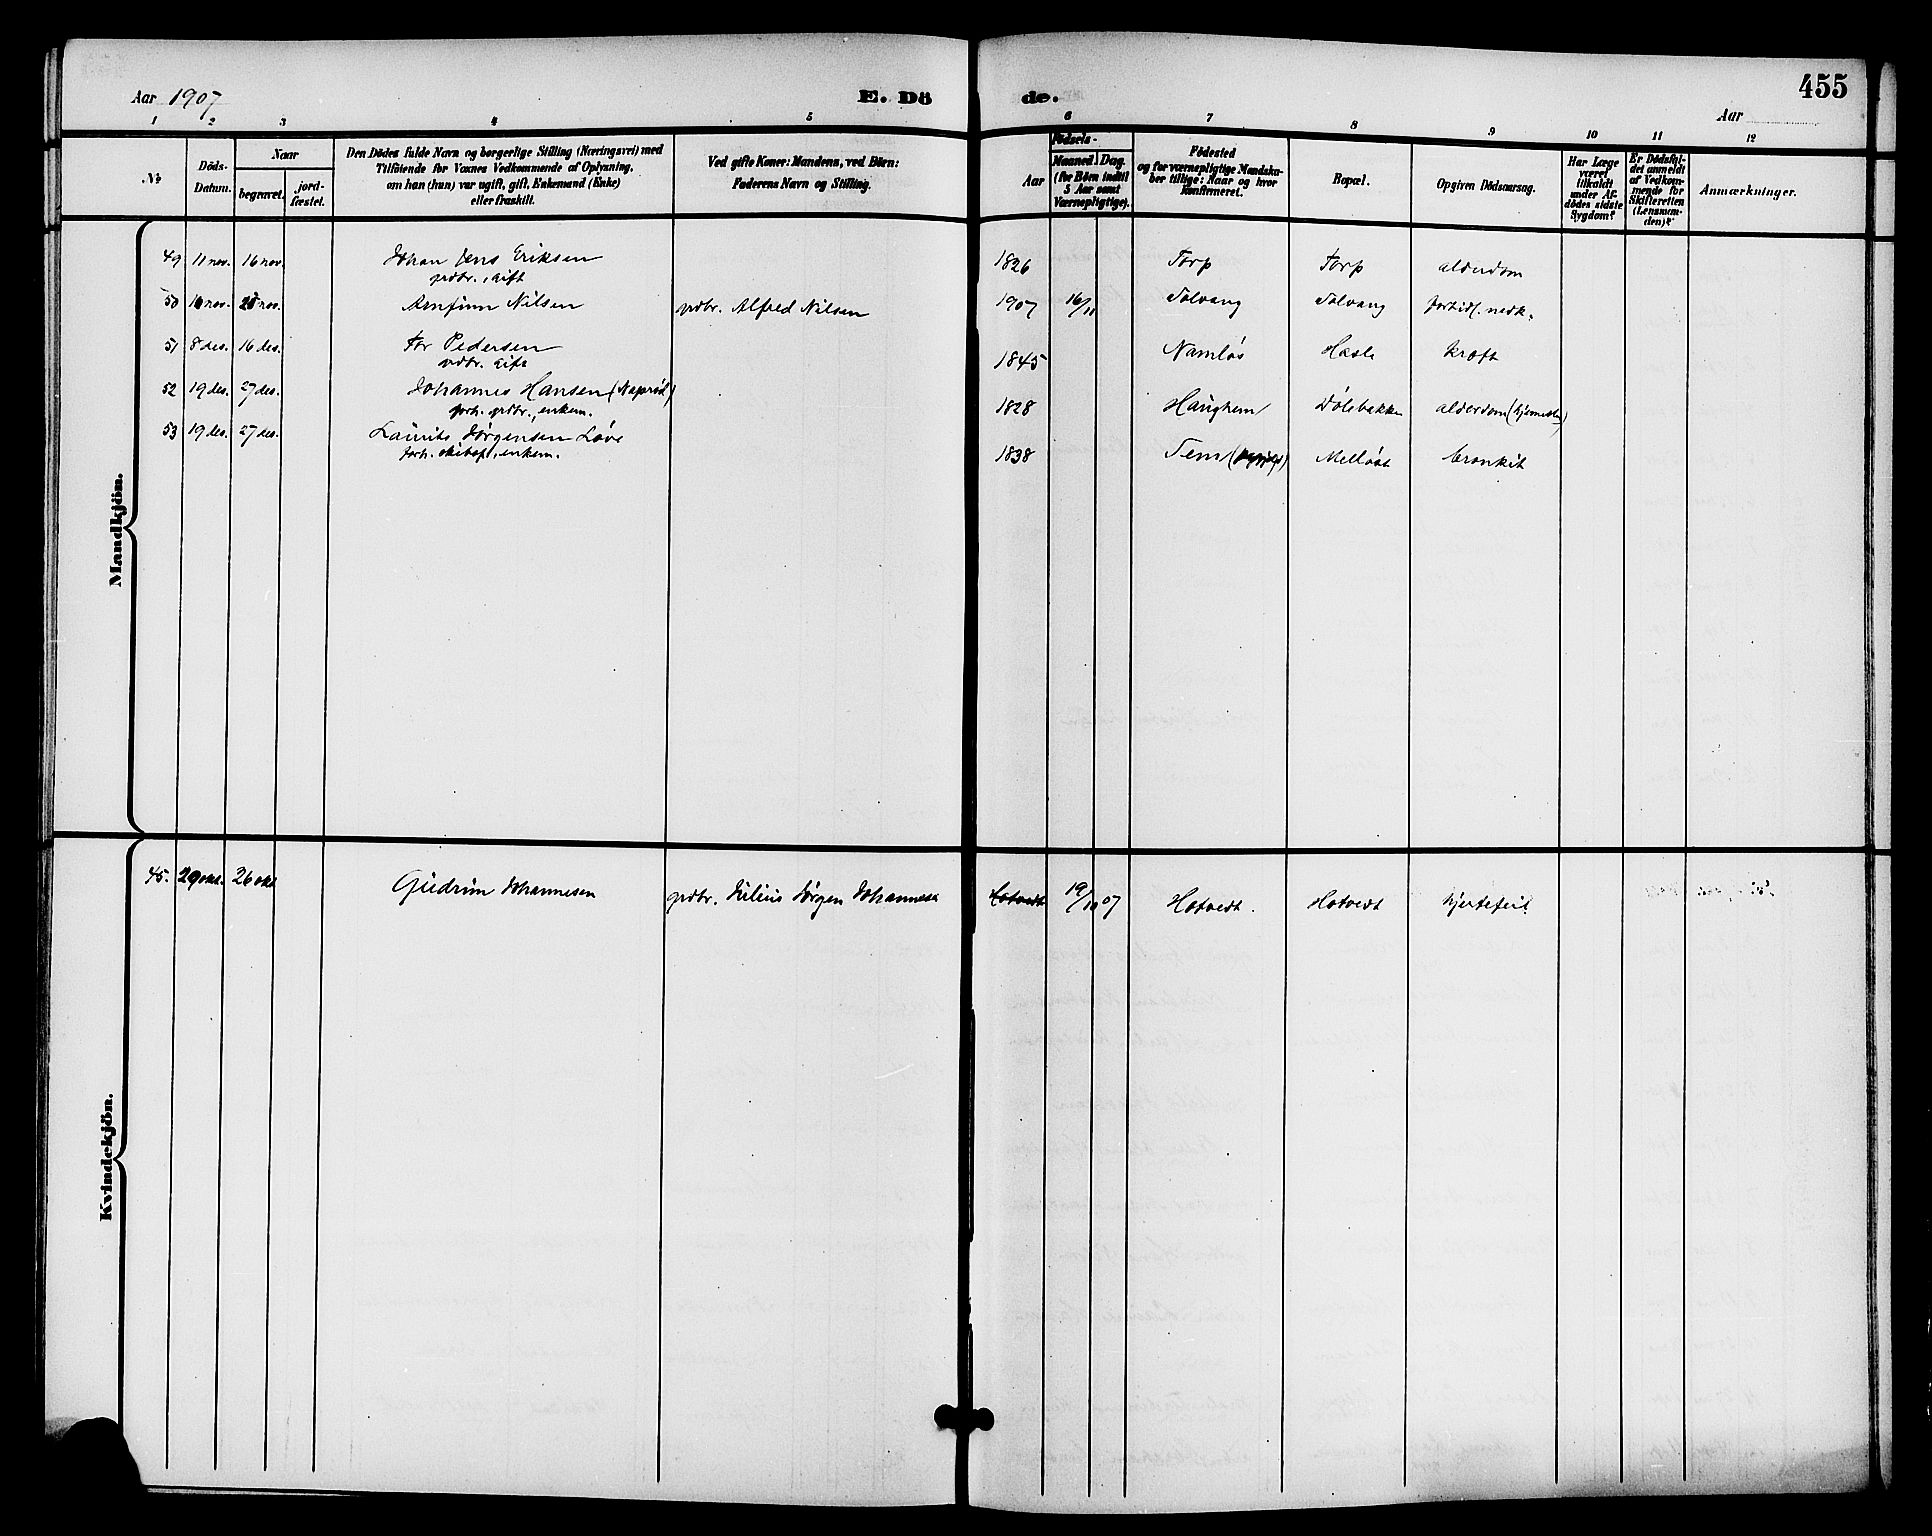 Aar 1907
E. Dö de.
455
Aar
1 2 3 4 5 6 7 8 9 10 11 12
№
Döds-Datum.
Naar
begravet.
jord-fæstet.
Den Dödes fulde Navn og borgerlige Stilling (Næringsvei) med
Tilföiende for Voxnes Vedkommende af Oplysning,
om han (hun) var ugift, gift, Enkemand (Enke)
eller fraskilt.
Ved gifte Koner: Mandens, ved Börn:
Faderens Navn og Stilling.
Födsels-
Aar
Maaned.
Dag.
(for Börn indtil
5 Aar samt
Værnepligtige).
Födested
og for værnepligtige Mandska-
ber tillige: Naar og hvor
konfirmeret.
Bopæl.
Opgiven Dödsaarsag.
Har Læge
været
tilkaldt
under Af-
dödes sidste
Sygdom?
Er Dödsfal-
det anmeldt
af Vedkom-
mende for
Skifteretten
(Lensman-
den)?
Anmærkninger.
Mandkjön.
49 11 nov. 16 nov. Johan Jens Eriksen 1826 Torp Torp alderdom
grdbr., gift
50 16 nov. nov. Arnfinn Nilsen grdbr. Alfred Nilsen 1907 16/11 Solvang Solvang fortidl. nedk.
51 8 des. 16 des. Tor Pedersen 1845 Namløs Hasle kræft
grdbr. gift
52 19 des. 27 des. Johannes Hansen (Naprød) 1828 Haughem Dølebakken alderdom
forh. grdbr., enkem.
53 19 des. 27 des. Laurits Jørgensen Løve 1838 Tem Melløst bronkit
forh. skibsf., enkem.
Kvindekjön.
45. 20 okt. 26 okt Gudrun Johannesen grdbr. Julius Jørgen Johannesen Hotvedt 19/10 07 Hotvedt. Hotvedt hjertefeil.